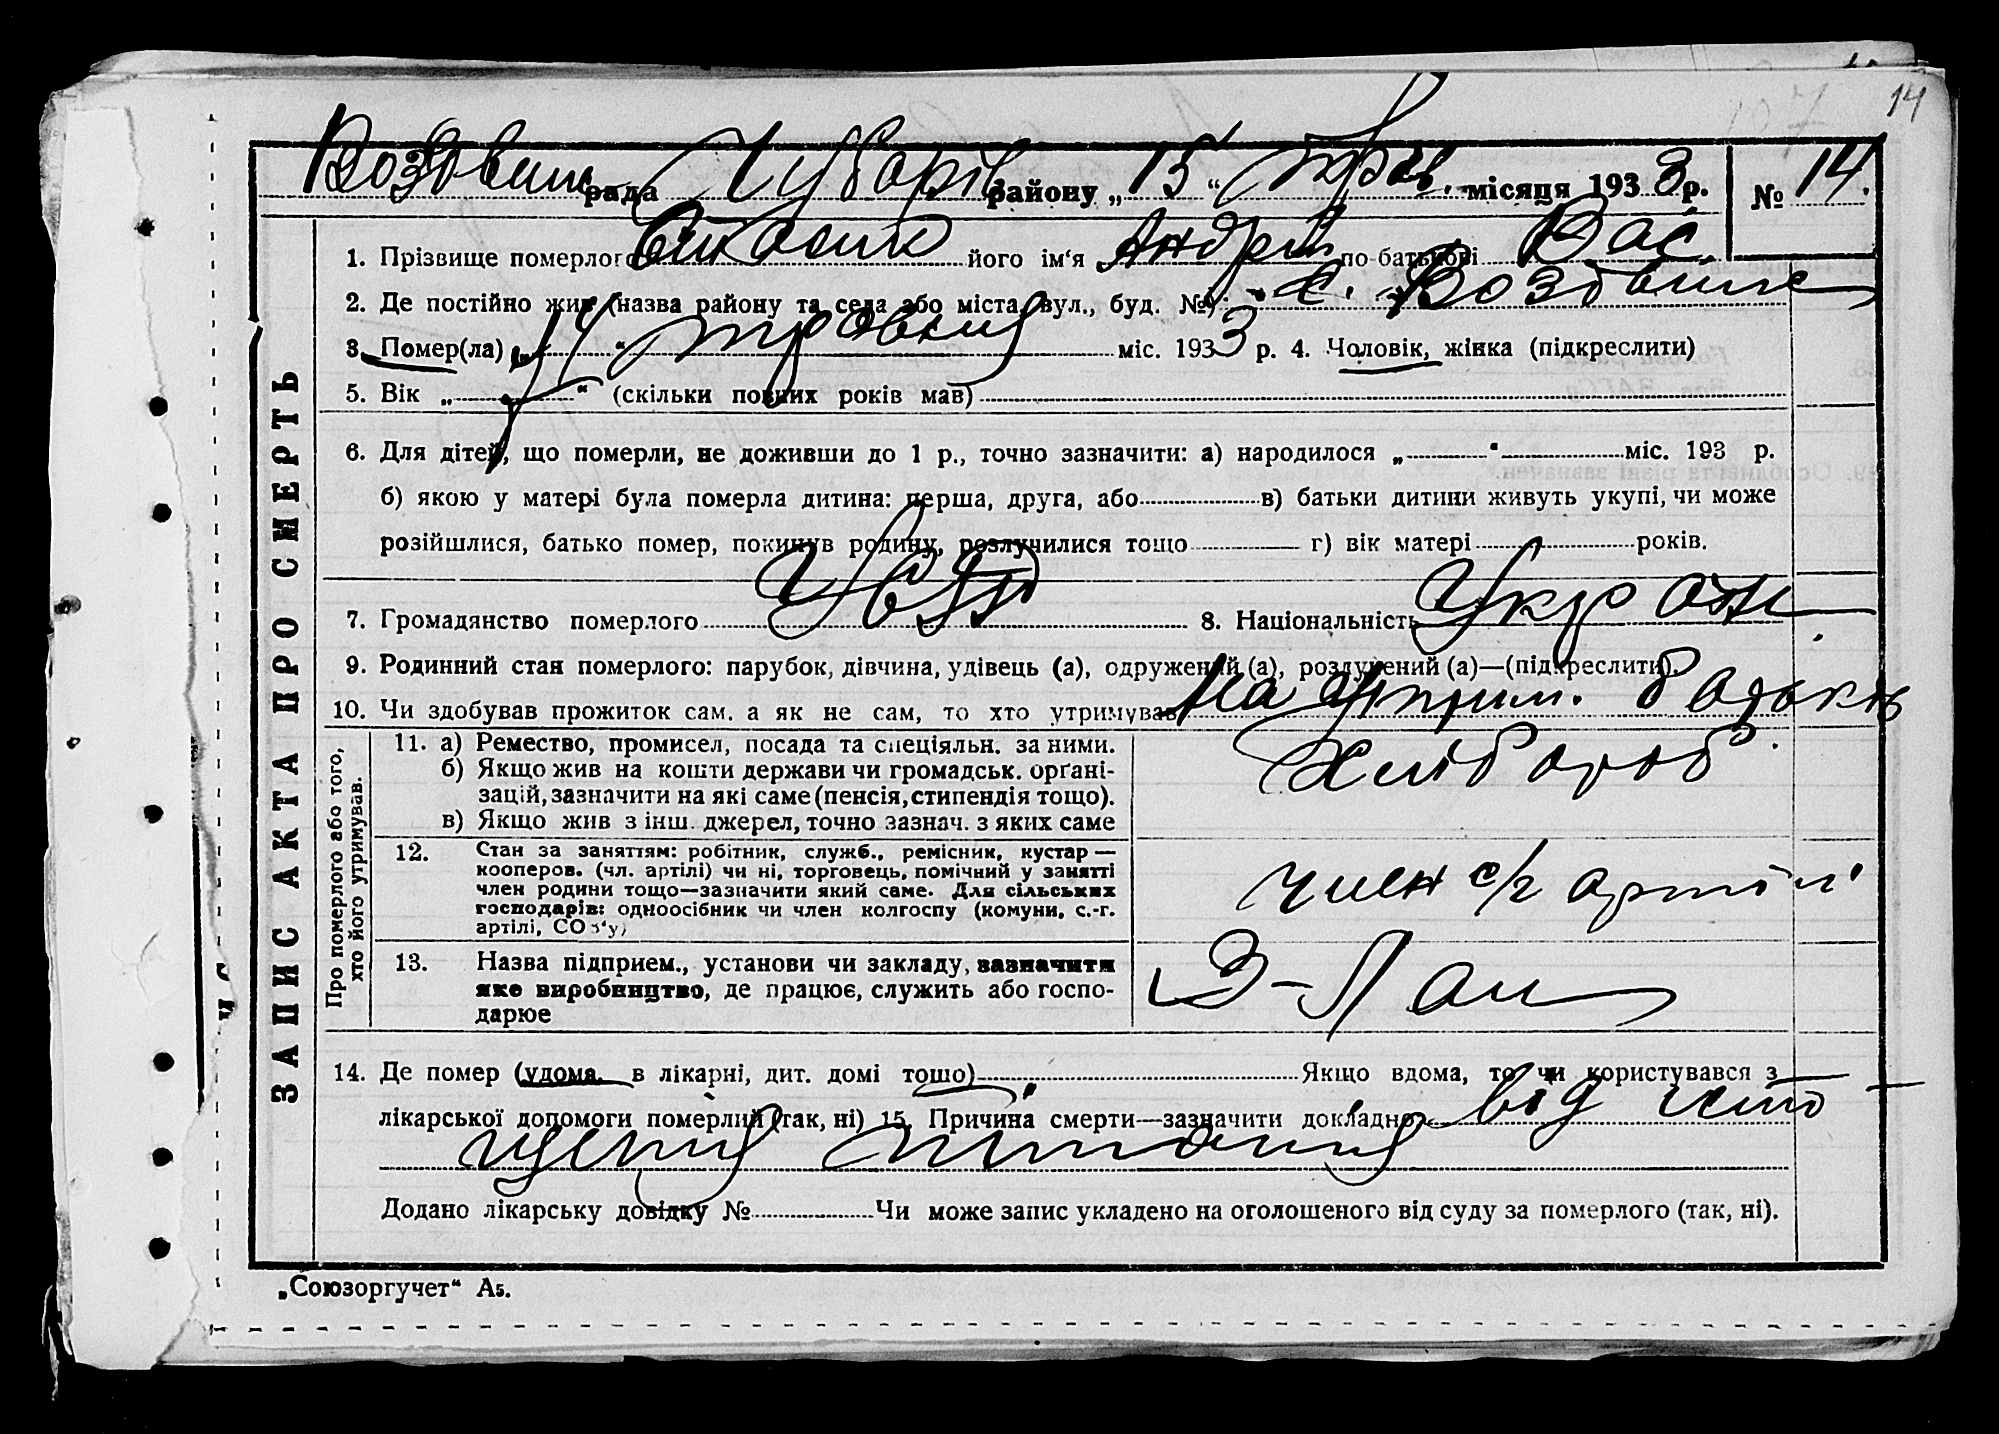 14
Воздвиж рада Чубарів району „ 15 “ Трав. місяця 193 3 р. № 14.
1. Прізвище померлого його ім‘я Андрій по батькові Вас.
2. Де постійно жив (назва району та села або міста, вул., буд. №) : с. Воздвиж
3. Помер(ла) „ 14 “ травня міс. 1933 р. 4. Чоловік, жінка (підкреслити)
5. Вік „ “ (скільки повних років мав)
6. Для дітей, що померли, не доживши до 1 р., точно зазначити: а) народилося „ “ міс. 193 р.
б) якою у матері була померла дитина: перша, друга, або в) батьки дитини живуть укупі, чи може
розійшлися, батько помер, покинув родину, розлучилися тощо г) вік матері років.
7. Громадянство померлого 8. Національність Украін
9. Родинний стан померлого: парубок, дівчина, удівець (а), одружений (а), розлучений (а)—(підкреслити).
10. Чи здобував прожиток сам, а як не сам, то хто утримував на утрим. батьків
ЗАПИС АКТА ПРО СМЕРТЬ
Про померлого або того,
хто його утримував.
11. а) Ремество, промисел, посада та спеціяльн. за ними.
б) Якщо жив на кошти держави чи громадськ. органі-
зацій, зазначити на які саме (пенсія, стипендія тощо).
в) Якщо жив з інш. джерел, точно зазнач. з яких саме
хлібороб
12. Стан за заняттям: робітник, служб., ремісник, кустар —
кооперов. (чл. артілі) чи ні, торговець, помічний у занятті
член родини тощо—зазначити який саме. Для сільських
господарів: одноосібник чи член колгоспу (комуни, с.-г.
артілі, СОЗ‘у)
член с/г артілі
13. Назва підприєм., установи чи закладу, зазначити
яке виробництво, де працює, служить або госпо-
дарює
14. Де помер (удома, в лікарні, дит. домі тощо) Якщо вдома, то чи користувався з
лікарської допомоги померлий (так, ні) 15. Причина смерти—зазначити докладно від исто
щения питания
Додано лікарську довідку № Чи може запис укладено на оголошеного від суду за померлого (так, ні).
„Союзоргучет“ А5.